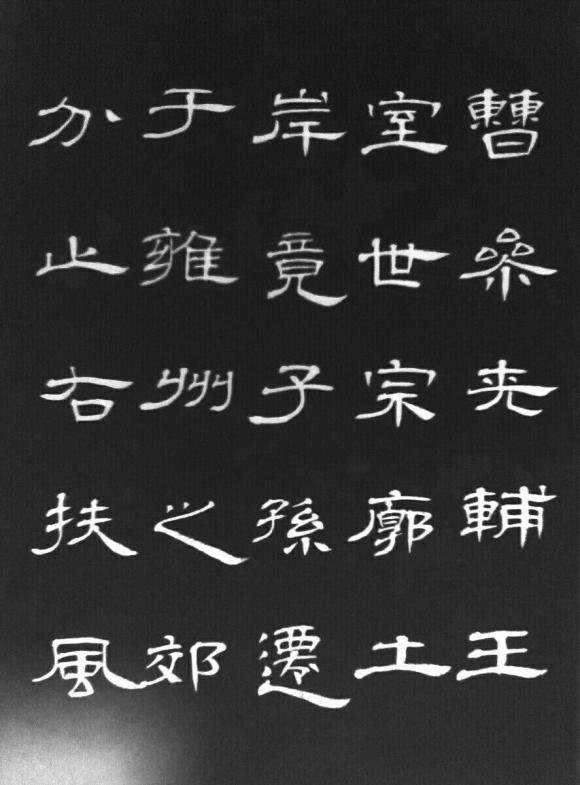 曹參夾輔王
室世宗廓土
岸竟子孫遷
于雍州之郊
分止右扶風